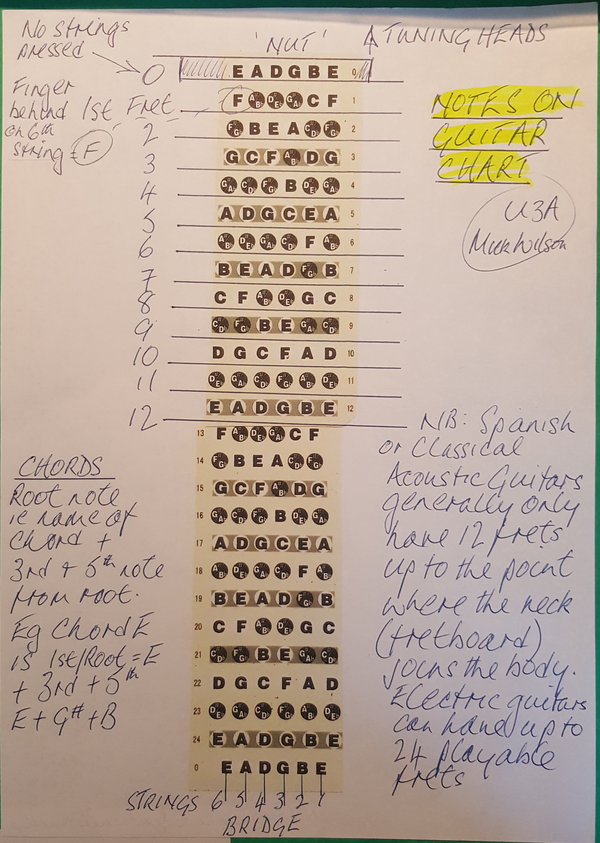 No strings
pressed
'NUT'
TUNING HEADS
0 E A D G B E 0
Finger
behind 1st Fret
on 6th
string = F
F A#/B♭ D#/E♭ G#/A♭ C F 1
2 F#/G♭ B E A C#/D♭ F#/G♭ 2
3 G C F A#/B♭ D G 3
4 G#/A♭ C#/D♭ F#/G♭ B D#/E♭ G#/A♭ 4
5 A D G C E A 5
6 A#/B♭ D#/E♭ G#/A♭ C#/D♭ F A#/B♭ 6
7 B E A D F#/G♭ B 7
8 C F A#/B♭ D#/E♭ G C 8
9 C#/D♭ F#/G♭ B E G#/A♭ C#/D♭ 9
10 D G C F A D 10
11 D#/E♭ G#/A♭ C#/D♭ F#/G♭ A#/B♭ D#/E♭ 11
12 E A D G B E 12
13 F A#/B♭ D#/E♭ G#/A♭ C F
14 F#/G♭ B E A C#/D♭ F#/G♭
15 G C F A#/B♭ D G
16 G#/A♭ C#/D♭ F#/G♭ B D#/E♭ G#/A♭
17 A D G C E A
18 A#/B♭ D#/E♭ G#/A♭ C#/D♭ F A#/B♭
19 B E A D F#/G♭ B
20 C F A#/B♭ D#/E♭ G C
21 C#/D♭ F#/G♭ B E G#/A♭ C#/D♭
22 D G C F A D
23 D#/E♭ G#/A♭ C#/D♭ F#/G♭ A#/B♭ D#/E♭
24 E A D G B E
0 E A D G B E
STRINGS 6 5 4 3 2 1
BRIDGE
NOTES ON
GUITAR
CHART
U3A
Mick Wilson
CHORDS
Root note
ie name of
Chord +
3rd + 5th note
from root.
Eg Chord E
is 1st/Root = E
+ 3rd + 5th
E + G# + B
NB: Spanish
or Classical
Acoustic Guitars
generally only
have 12 frets
up to the point
where the neck
(fretboard)
joins the body.
Electric guitars
can have up to
24 playable
frets